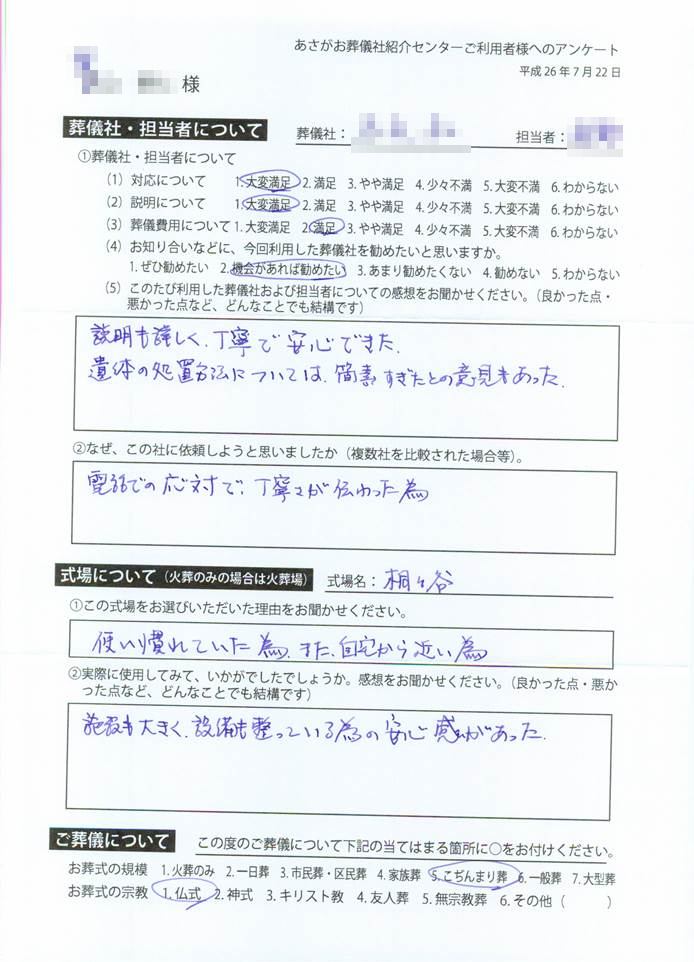 あさがお葬儀社紹介センターご利用者様へのアンケート
平成26年7月22日
様
葬儀社・担当者について 葬儀社： 担当者：
①葬儀社・担当者について
(1) 対応について 1.大変満足 2.満足 3.やや満足 4.少々不満 5.大変不満 6.わからない
(2) 説明について 1.大変満足 2.満足 3.やや満足 4.少々不満 5.大変不満 6.わからない
(3) 葬儀費用について 1.大変満足 2.満足 3.やや満足 4.少々不満 5.大変不満 6.わからない
(4) お知り合いなどに、今回利用した葬儀社を勧めたいと思いますか。
1.ぜひ勧めたい 2.機会があれば勧めたい 3.あまり勧めたくない 4.勧めない 5.わからない
(5) このたび利用した葬儀社および担当者についての感想をお聞かせください。（良かった点・
悪かった点など、どんなことでも結構です）
説明も詳しく、丁寧で安心できた。
遺体の処置方法については、簡素すぎたとの意見もあった。
②なぜ、この社に依頼しようと思いましたか（複数社を比較された場合等）。
電話での応対で、丁寧さが伝わった為
式場について（火葬のみの場合は火葬場） 式場名：桐ヶ谷
①この式場をお選びいただいた理由をお聞かせください。
使い慣れていた為、また、自宅から近い為
②実際に使用してみて、いかがでしたでしょうか。感想をお聞かせください。（良かった点・悪か
った点など、どんなことでも結構です）
施設も大きく、設備も整っている為の安心感があった。
ご葬儀について この度のご葬儀について下記の当てはまる箇所に○をお付けください。
お葬式の規模 1.火葬のみ 2.一日葬 3.市民葬・区民葬 4.家族葬 5.こぢんまり葬 6.一般葬 7.大型葬
お葬式の宗教 1.仏式 2.神式 3.キリスト教 4.友人葬 5.無宗教葬 6.その他（ ）